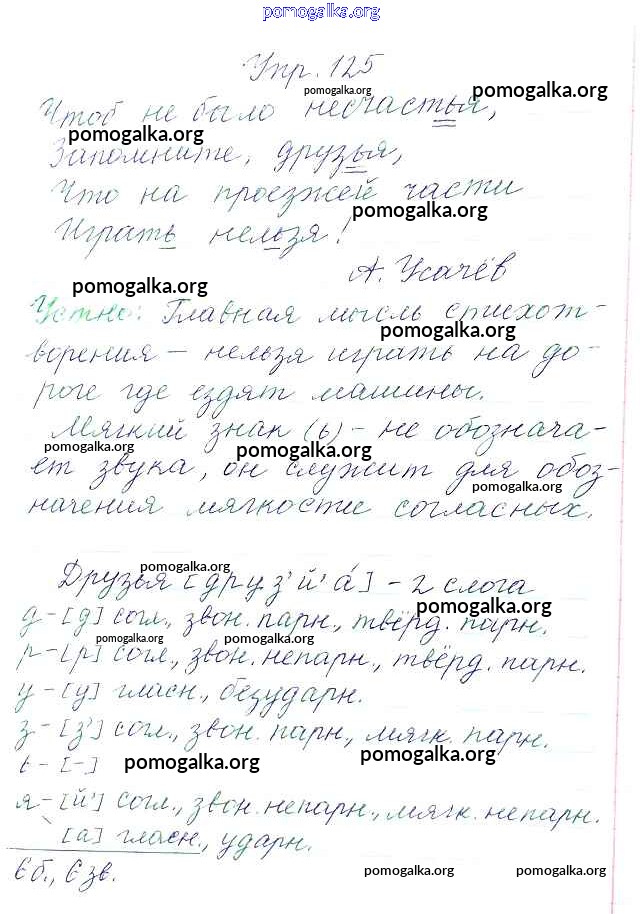 pomogalka.org
Упр. 125
pomogalka.org pomogalka.org
Чтоб не было несчастья,
pomogalka.org
Запомните, друзья,
Что на проезжей части
pomogalka.org
Играть нельзя!
А. Усачёв
pomogalka.org
Устно: Главная мысль стихот-
pomogalka.org
ворения – нельзя играть на до-
роге где ездят машины.
Мягкий знак (ь) – не обознача-
pomogalka.org pomogalka.org
ет звука, он служит для обоз-
pomogalka.org
начения мягкости согласных.
pomogalka.org
Друзья [друз'й'а́] – 2 слога
pomogalka.org
д – [д] согл., звон. парн., твёрд. парн.
pomogalka.org pomogalka.org
р – [р] согл., звон. непарн., твёрд. парн.
у – [у] гласн., безударн.
з – [з'] согл., звон. парн., мягк. парн.
pomogalka.org
ь – [–] pomogalka.org
я – [й'] согл., звон. непарн., мягк. непарн.
[а] гласн., ударн.
6 б., 6 зв.
pomogalka.org pomogalka.org